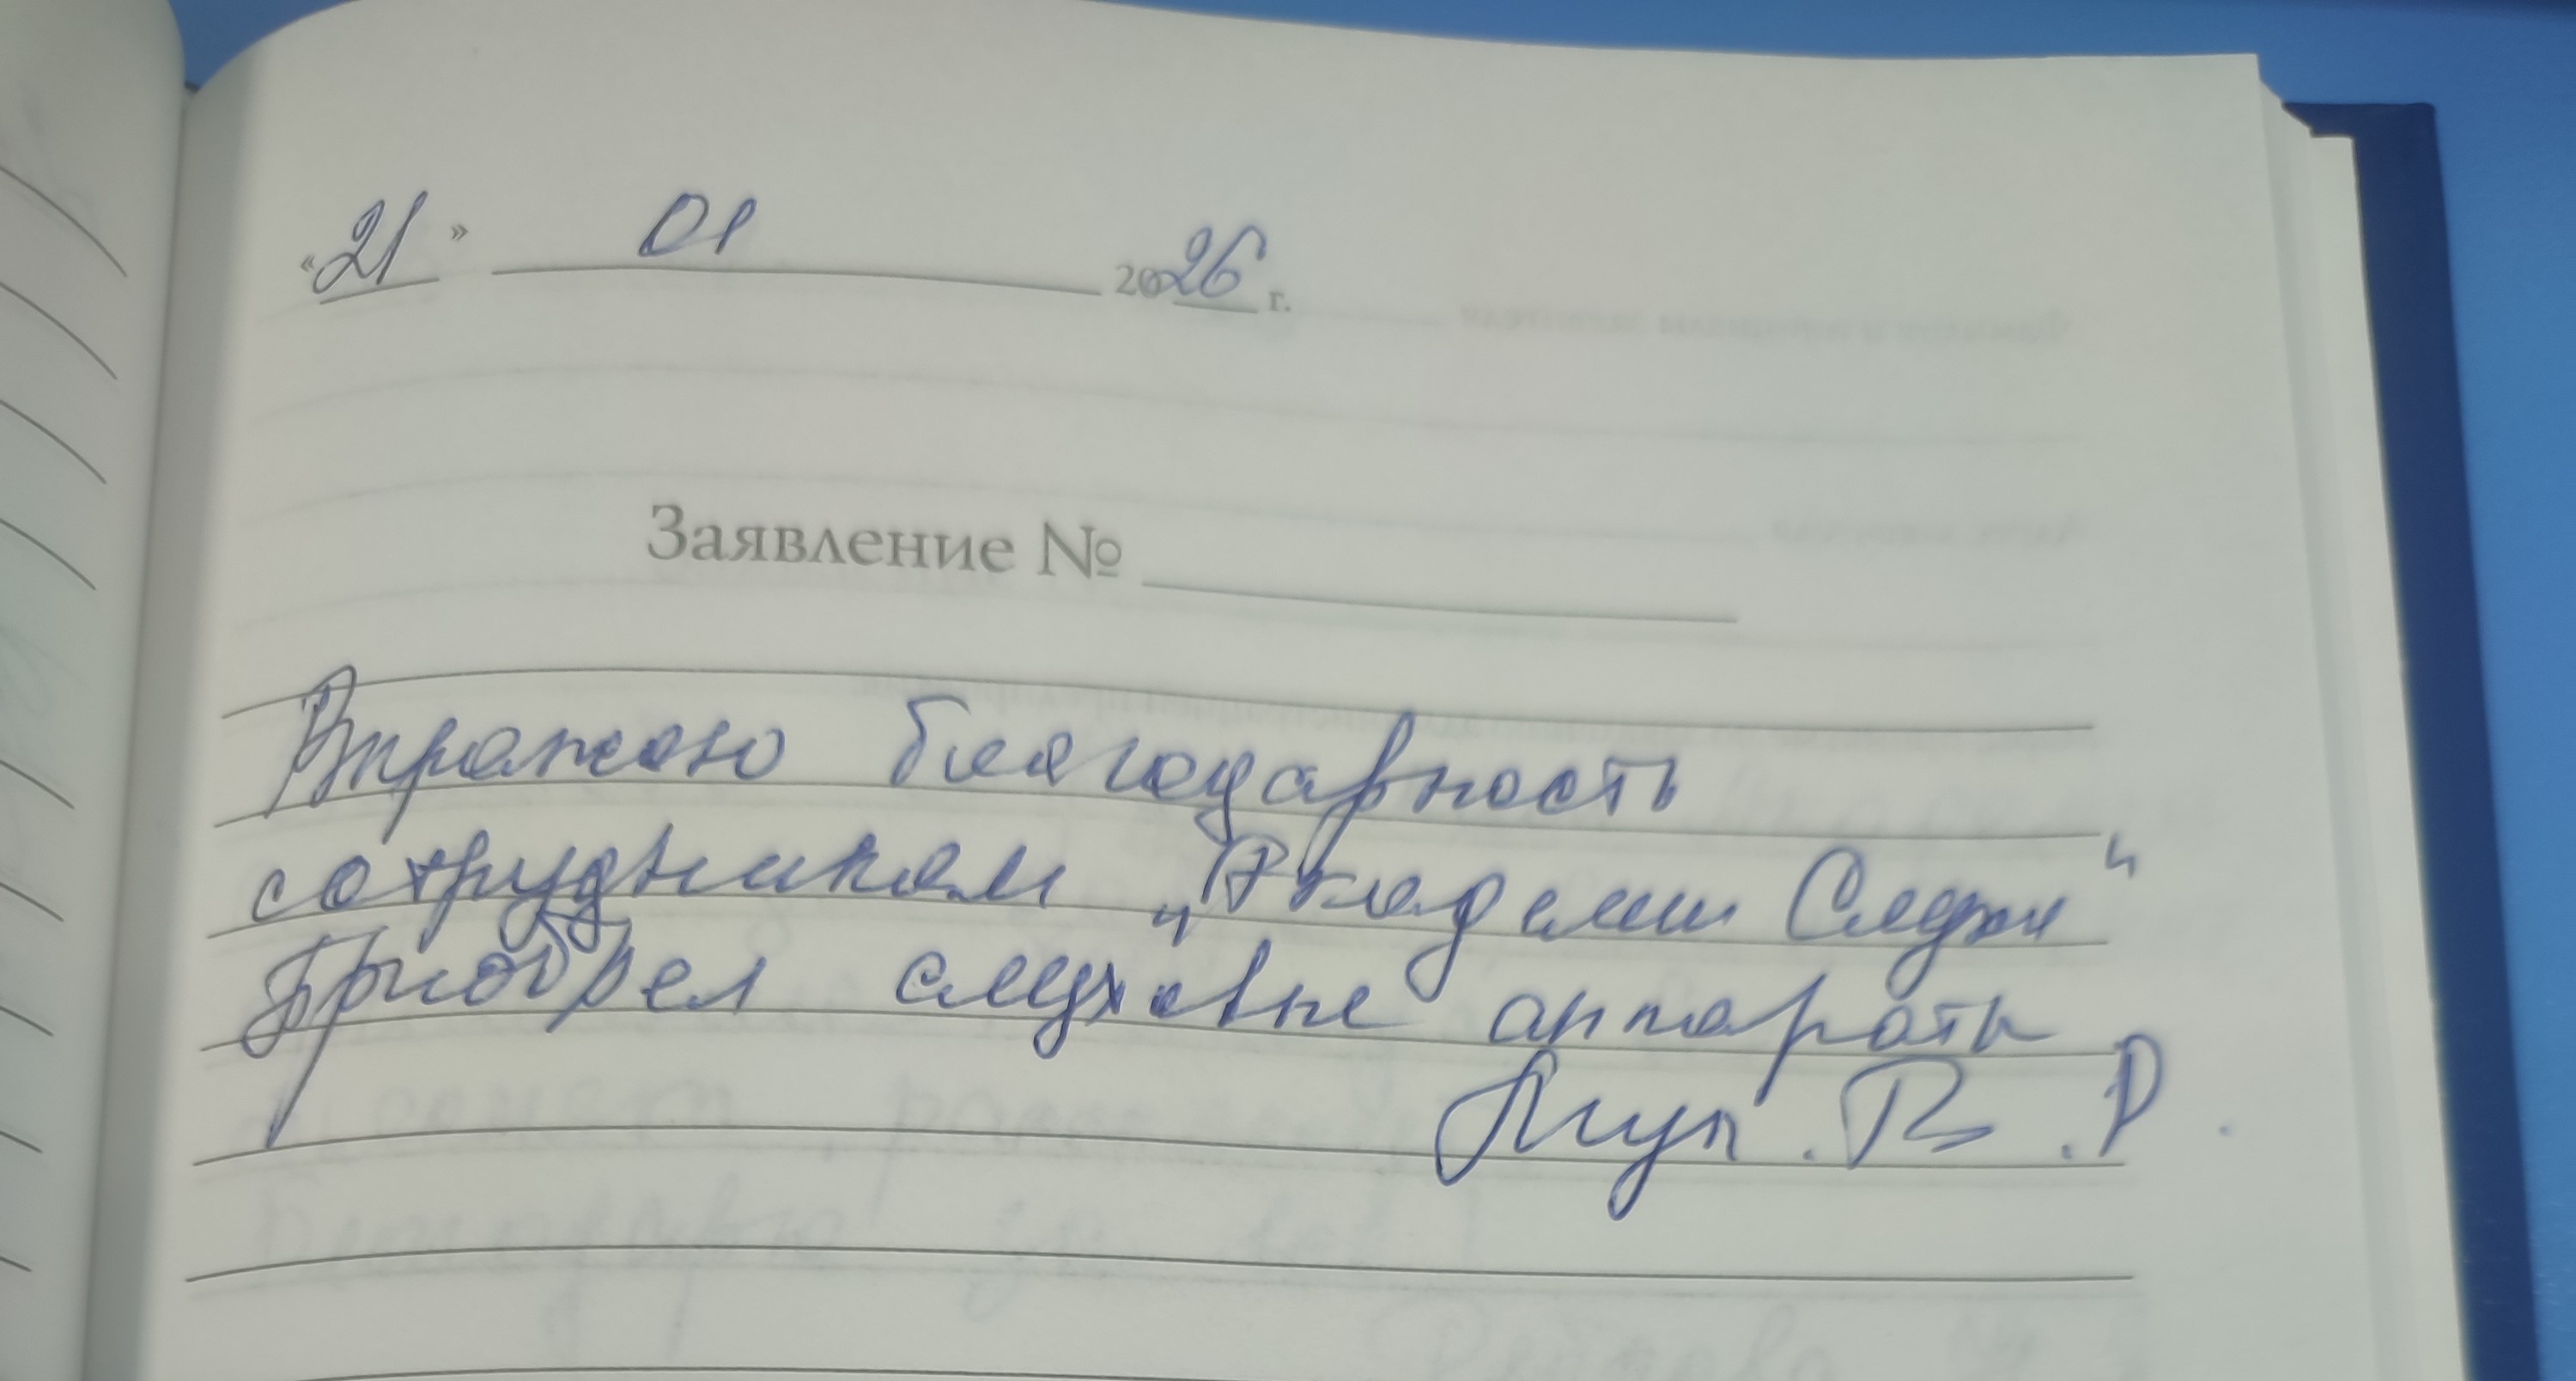 «21» 01 2026 г.
Заявление №
Выражаю благодарность
сотрудникам "Академии Слуха"
Приобрел слуховые аппараты
В. Р.